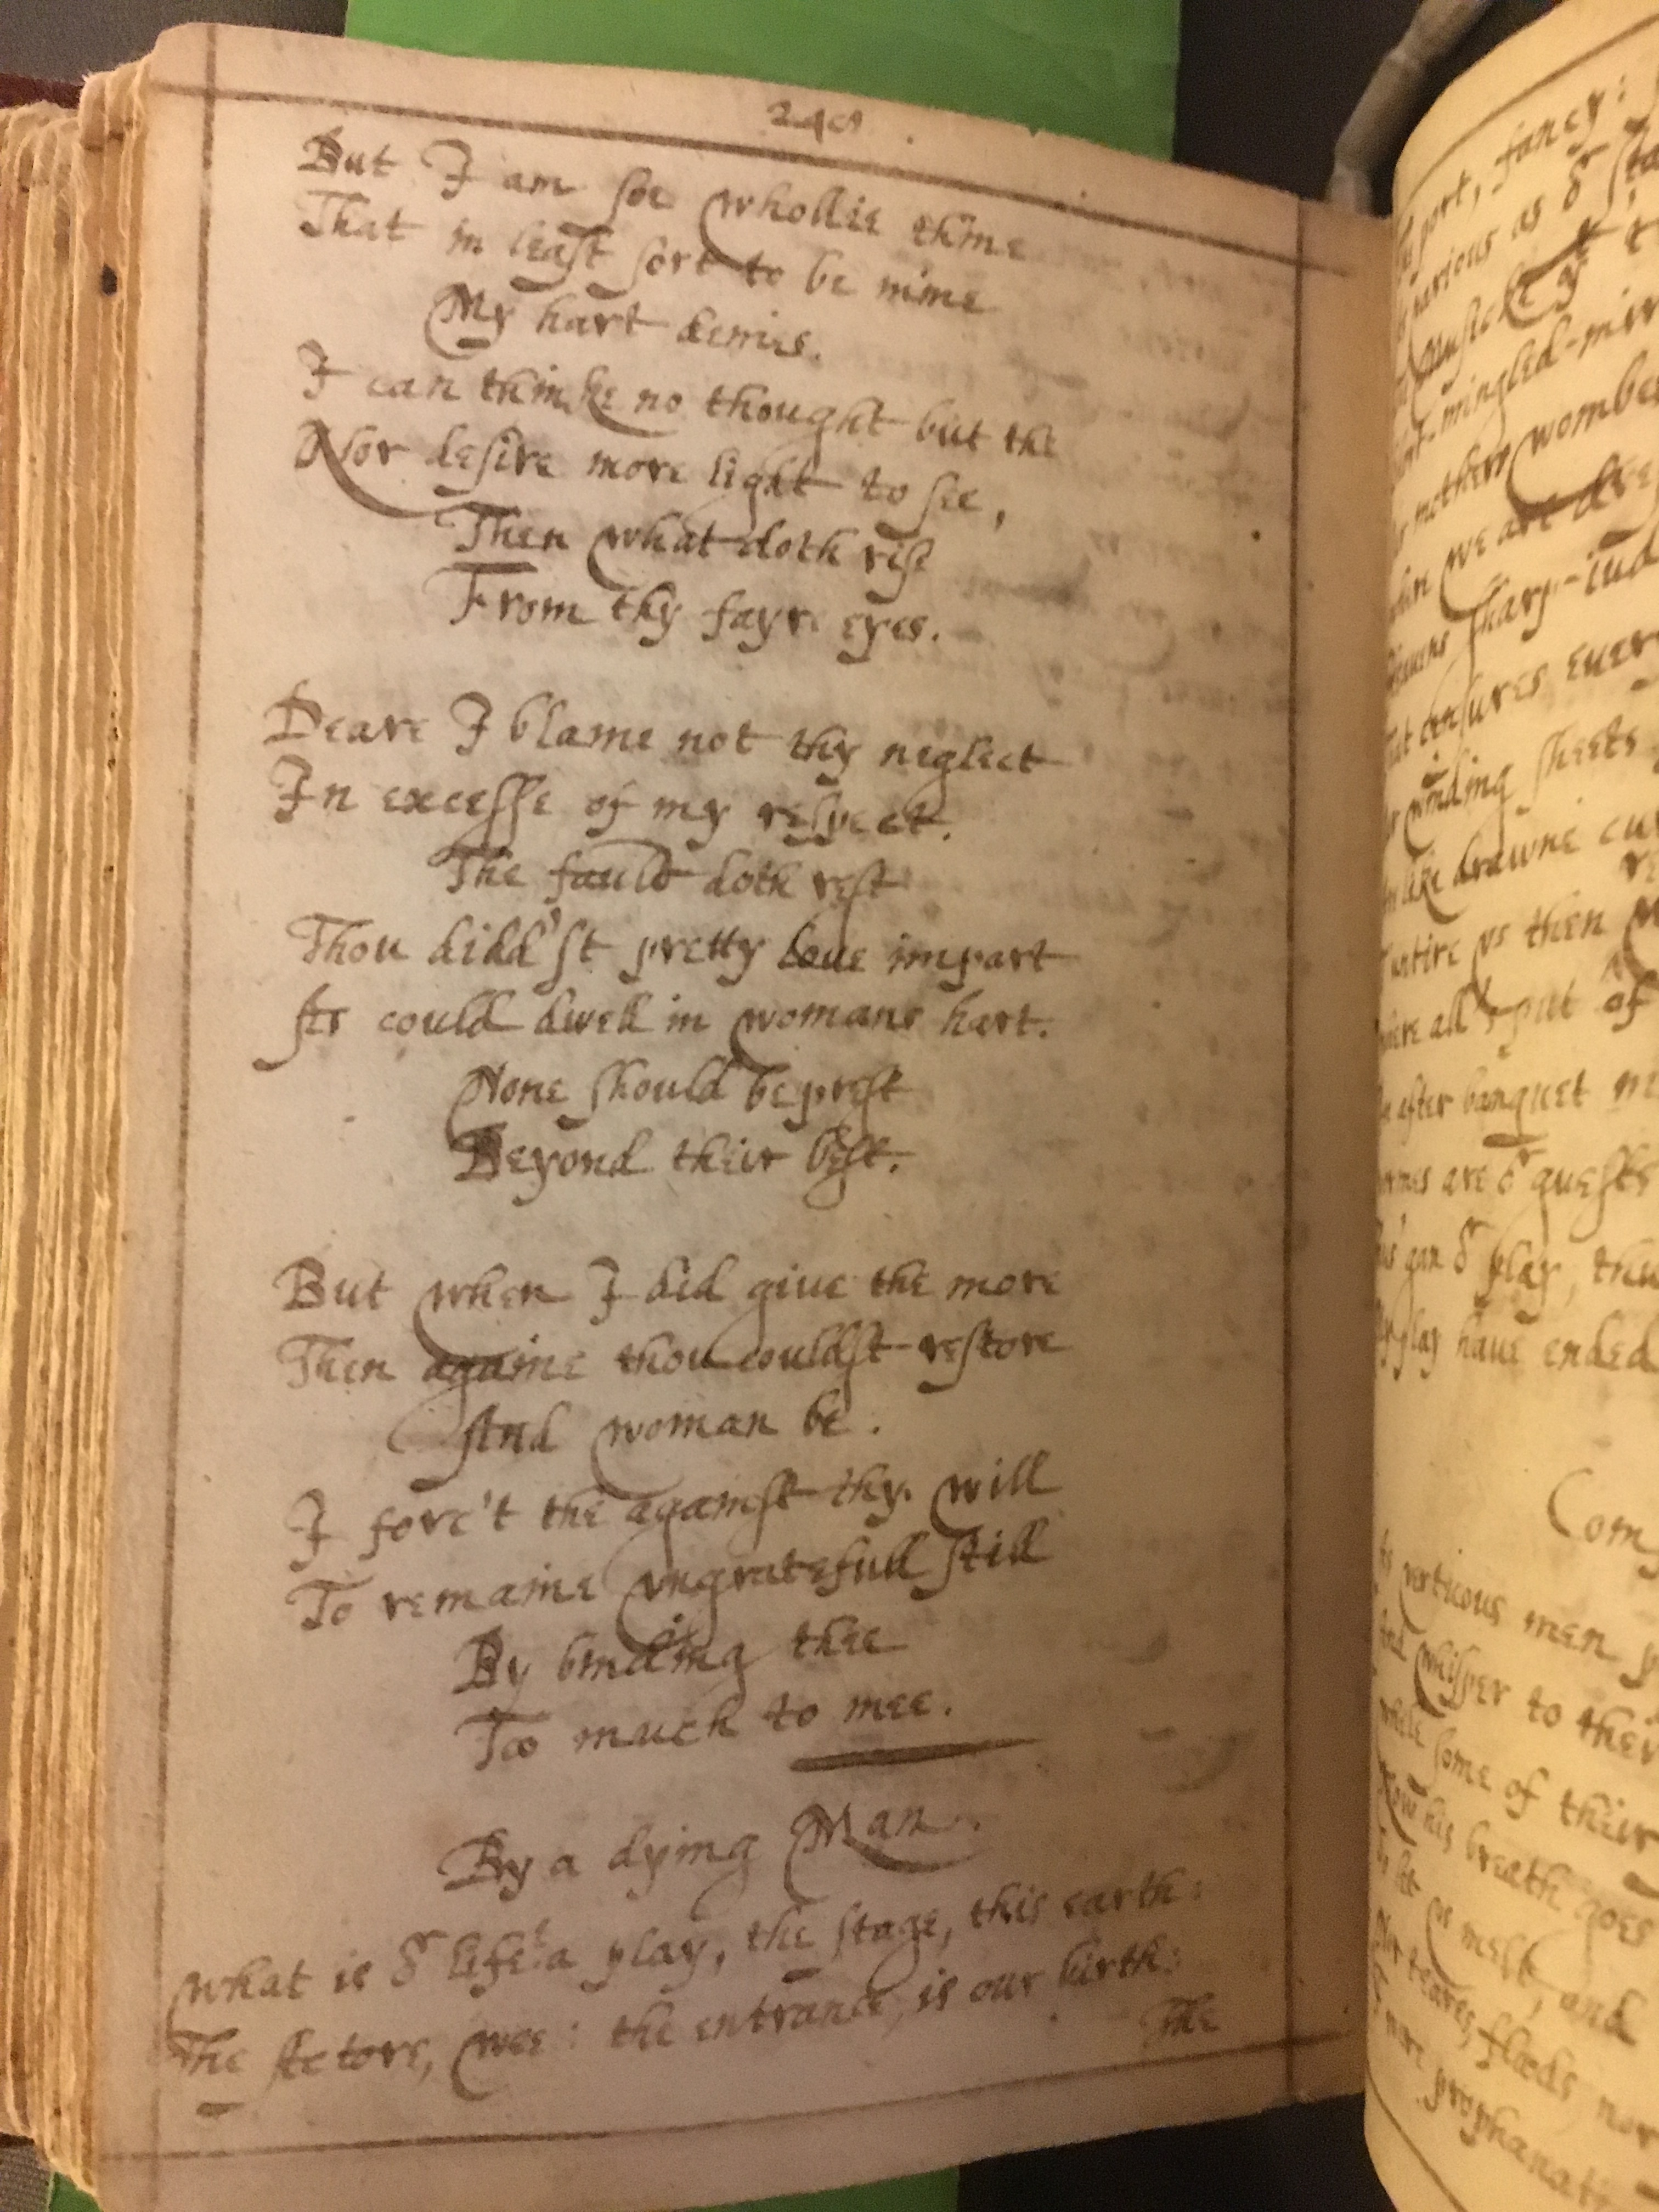 But I am soe whollie thine
That in least sort to be mine
My hart denies.
I can thinke no thought but the
Nor desire more light to see,
Then what doth rise
From thy fayre eyes.
Deare I blame not thy neglect
In excesse of my respect.
The fault doth rest
Thou didd'st pretty loue impart
As could dwell in womans hart.
None should be prest
Beyond their best.
But when I did giue the more
Then againe thou couldst restore
And woman be.
I forc't the against thy will
To remaine vngratefull still
By binding thee
Too much to mee.
By a dying Man.
What is or life? a play, the stage, this earth:
The Actors, wee: the entrance, is our birth:
The
port, fancy:
various as or
Musicke yt
mingled-mir
mothers wombe
when we are dre
sharp-iud
censures euer
winding sheets
like drawne cur
vs then
all put of
after banquet
are or guests
gan or play, thu
play haue ended
Com
vertuous men
whisper to their
some of their
Now his breath goes
vs melt, and
teares, floods nor
prophanati